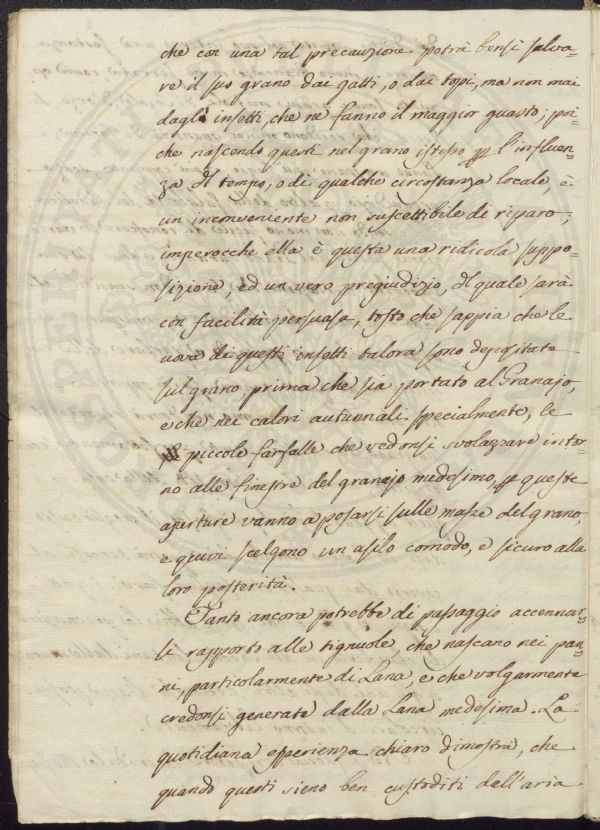 che con una tal precauzione potrà bensì salva-
re il suo grano dai gatti, o dai topi, ma non mai
dagli insetti, che ne fanno il maggior guasto; poi-
che nascendo questi nel grano istesso p l'influen-
za del tempo, o di qualche circostanza locale, è
un inconveniente non suscettibile di riparo;
imperocche ella è questa una ridicola suppo-
sizione, ed un vero pregiudizio, del quale sarà
con facilità persuasa, tosto che sappia che le
uova di questi insetti talora sono depositate
sul grano prima che sia portato al Granajo,
e che nei calori autunnali specialmente, le
piccole farfalle che vedonsi svolazzare intor-
no alle finestre del granajo medesimo, p queste
aperture vanno a posarsi sulle masse del grano,
e quivi scelgono un asilo comodo, e sicuro alla
loro posterità.
Tanto ancora potrebbe di passaggio accennar-
si rapporto alle tignuole, che nascano nei pan-
ni, particolarmente di Lana, e che volgarmente
credonsi generate dalla Lana medesima. La
quotidiana esperienza chiaro dimostra, che
quando questi sieno ben custoditi dall'aria